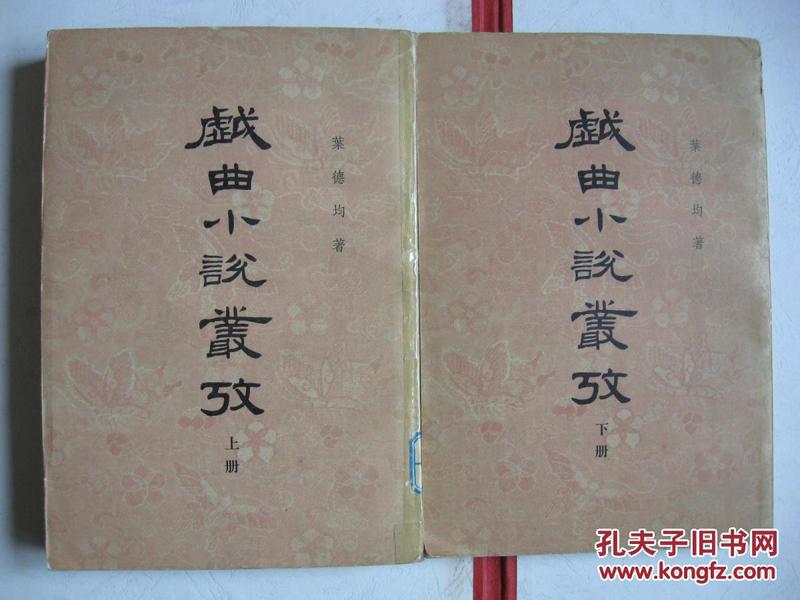 戯曲小説叢攷
上册
葉德均著
戯曲小説叢攷
下册
葉德均著
孔夫子旧书网
www.kongfz.com